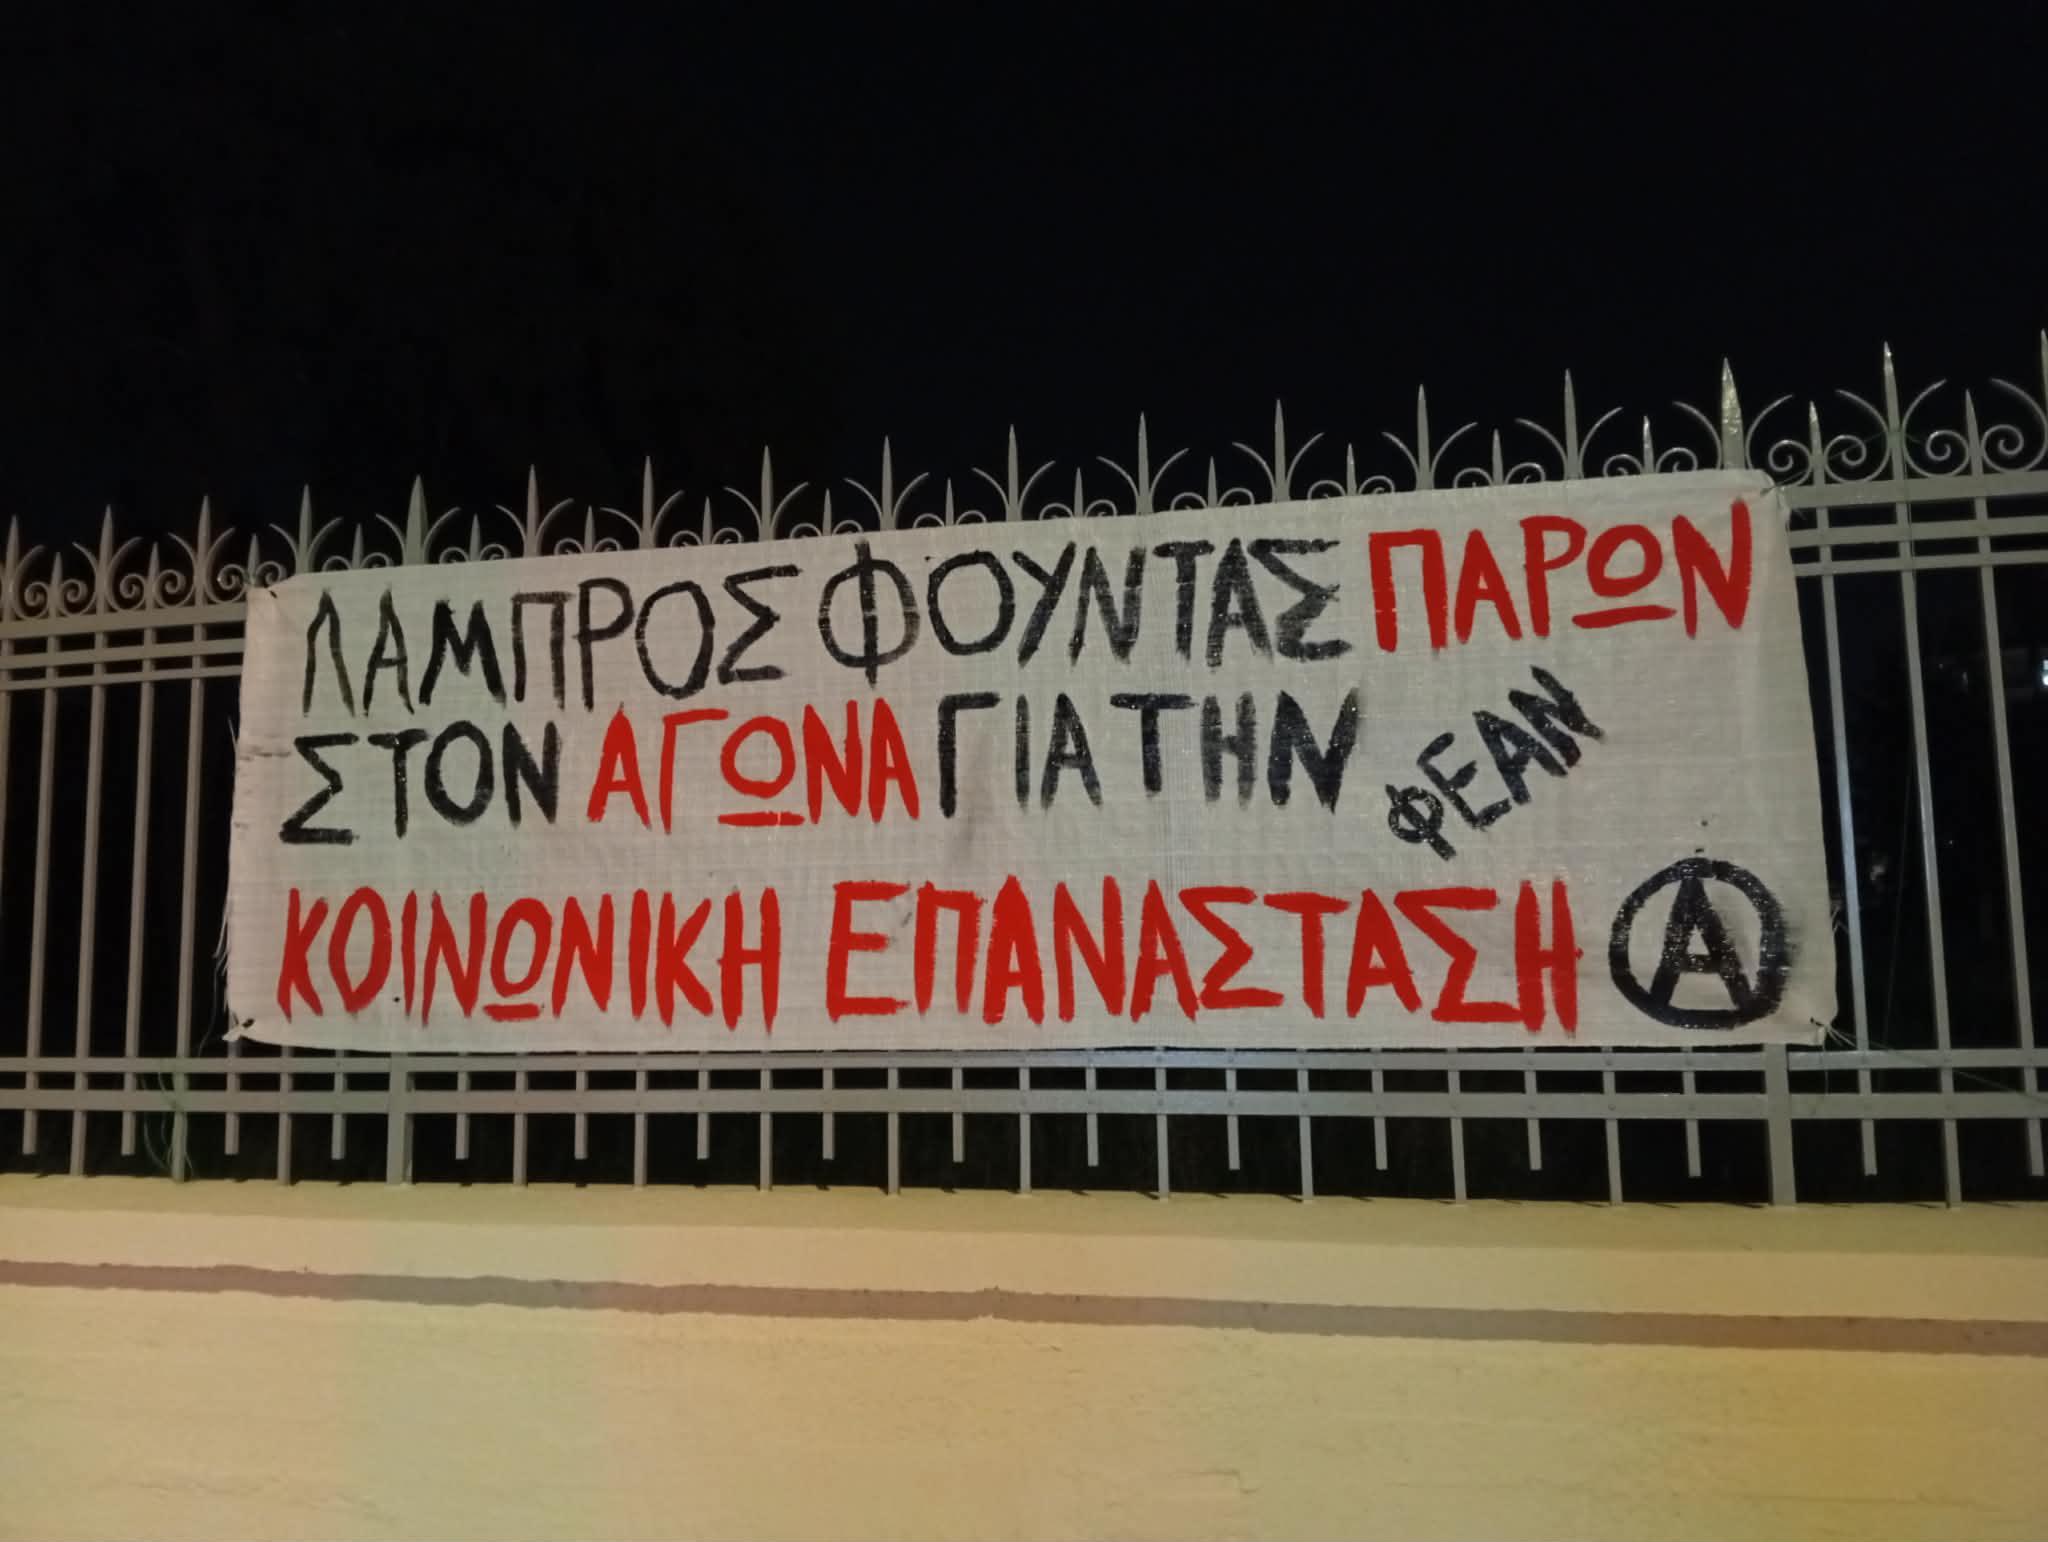 ΛΑΜΠΡΟΣ ΦΟΥΝΤΑΣ ΠΑΡΩΝ
ΣΤΟΝ ΑΓΩΝΑ ΓΙΑ ΤΗΝ
ΦΕΑΝ
ΚΟΙΝΩΝΙΚΗ ΕΠΑΝΑΣΤΑΣΗ Ⓐ